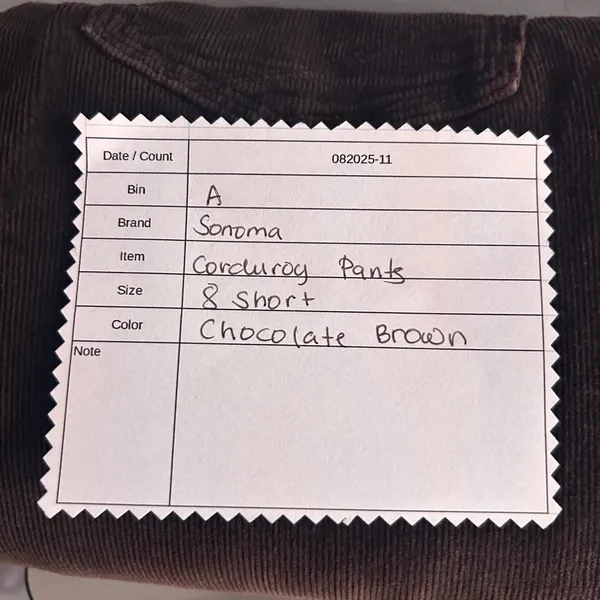 Date / Count 082025-11
Bin A
Brand Sonoma
Item Corduroy Pants
Size 8 Short
Color Chocolate Brown
Note